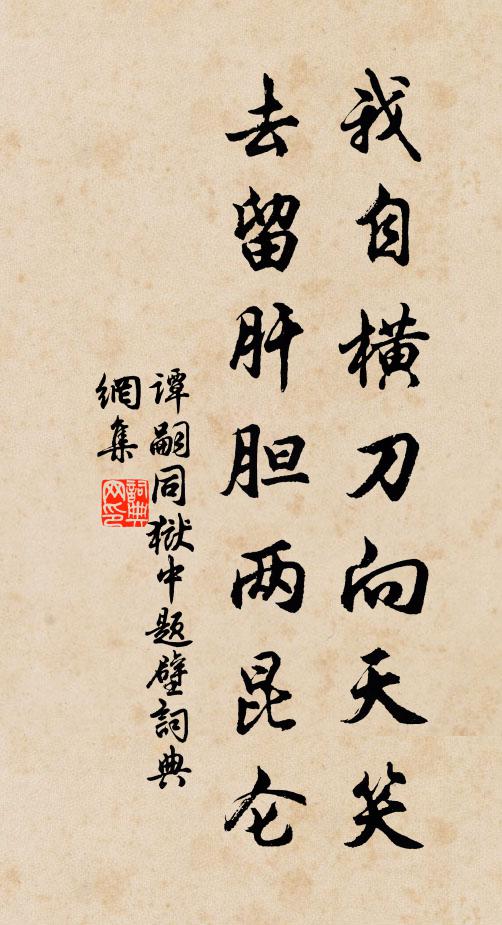 我自横刀向天笑
去留肝胆两昆仑
谭嗣同獄中题壁詞典
網集
詞典
网印